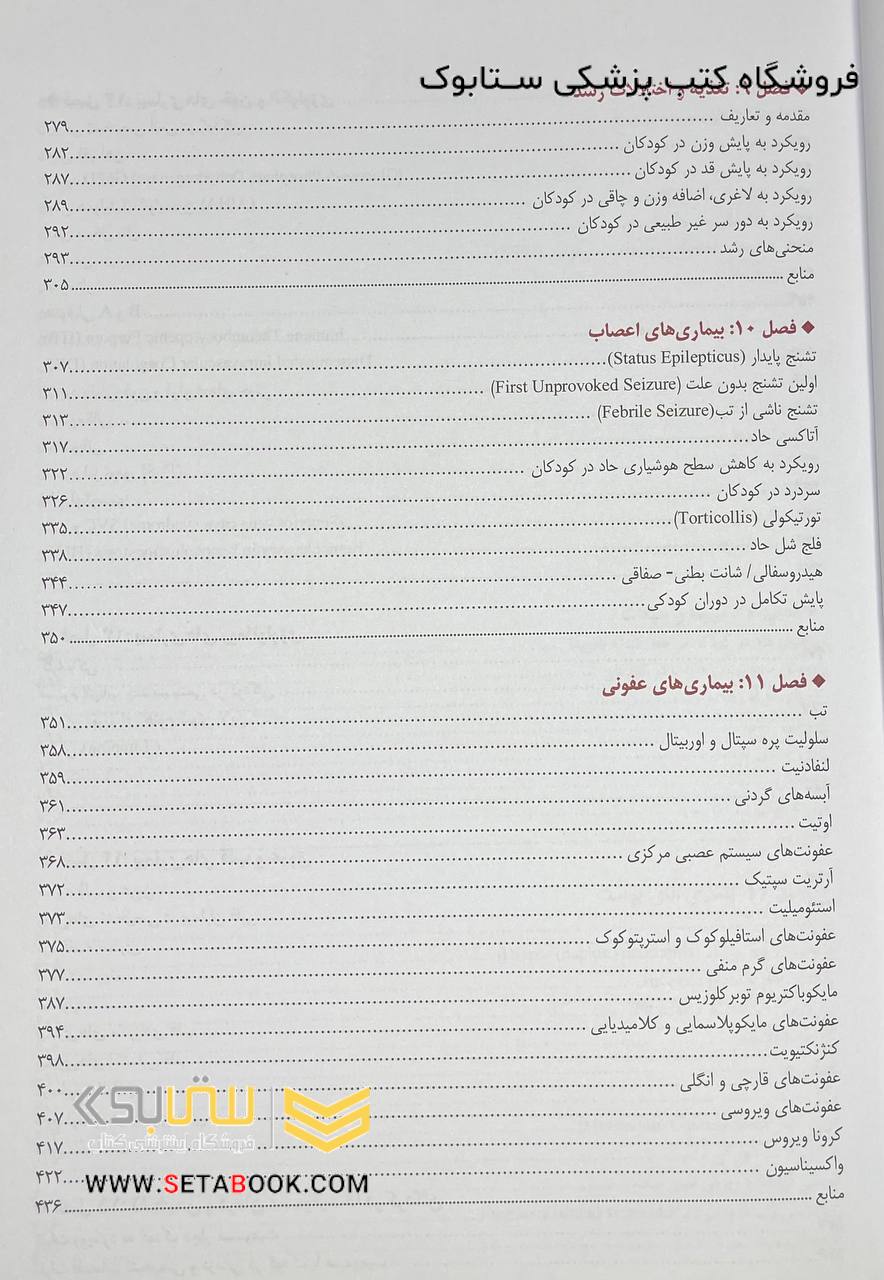 فروشگاه کتب پزشکی ستابوک
◆ فصل ۹: تغذیه و اختلالات رشد
مقدمه و تعاریف ........ ۲۷۹
رویکرد به پایش وزن در کودکان ........ ۲۸۲
رویکرد به پایش قد در کودکان ........ ۲۸۷
رویکرد به لاغری، اضافه وزن و چاقی در کودکان ........ ۲۸۹
رویکرد به دور سر غیر طبیعی در کودکان ........ ۲۹۲
منحنی‌های رشد ........ ۲۹۳
منابع ........ ۳۰۵
◆ فصل ۱۰: بیماری‌های اعصاب
تشنج پایدار (Status Epilepticus) ........ ۳۰۷
اولین تشنج بدون علت (First Unprovoked Seizure) ........ ۳۱۱
تشنج ناشی از تب(Febrile Seizure) ........ ۳۱۳
آتاکسی حاد ........ ۳۱۷
رویکرد به کاهش سطح هوشیاری حاد در کودکان ........ ۳۲۲
سردرد در کودکان ........ ۳۲۶
تورتیکولی (Torticollis) ........ ۳۳۵
فلج شل حاد ........ ۳۳۸
هیدروسفالی/ شانت بطنی- صفاقی ........ ۳۴۴
پایش تکامل در دوران کودکی ........ ۳۴۷
منابع ........ ۳۵۰
◆ فصل ۱۱: بیماری‌های عفونی
تب ........ ۳۵۱
سلولیت پره سپتال و اوربیتال ........ ۳۵۸
لنفادنیت ........ ۳۵۹
آبسه‌های گردنی ........ ۳۶۱
اوتیت ........ ۳۶۳
عفونت‌های سیستم عصبی مرکزی ........ ۳۶۸
آرتریت سپتیک ........ ۳۷۲
استئومیلیت ........ ۳۷۳
عفونت‌های استافیلوکوک و استرپتوکوک ........ ۳۷۵
عفونت‌های گرم منفی ........ ۳۷۷
مایکوباکتریوم توبرکلوزیس ........ ۳۸۷
عفونت‌های مایکوپلاسمایی و کلامیدیایی ........ ۳۹۴
کنژنکتیویت ........ ۳۹۸
عفونت‌های قارچی و انگلی ........ ۴۰۰
عفونت‌های ویروسی ........ ۴۰۷
کرونا ویروس ........ ۴۱۷
واکسیناسیون ........ ۴۲۲
منابع ........ ۴۳۶
ستابوک
فروشگاه اینترنتی کتاب
WWW.SETABOOK.COM